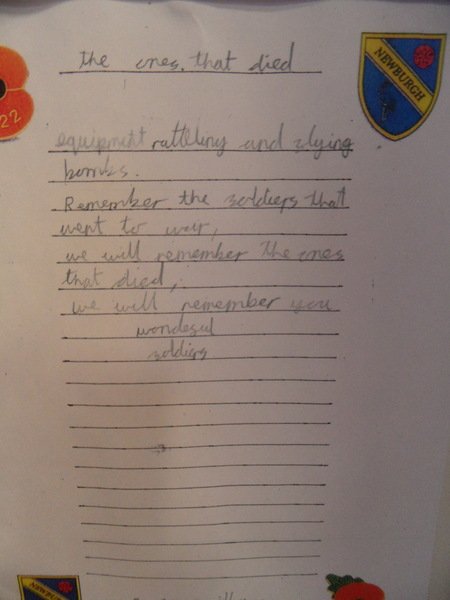 the ones that died
NEWBURGH
22
equipment rattleing and flying
bombs.
Remember the soldiers that
went to war,
we will remember the ones
that died,
we will remember you
wondeful
soldiers
NEWBURGH